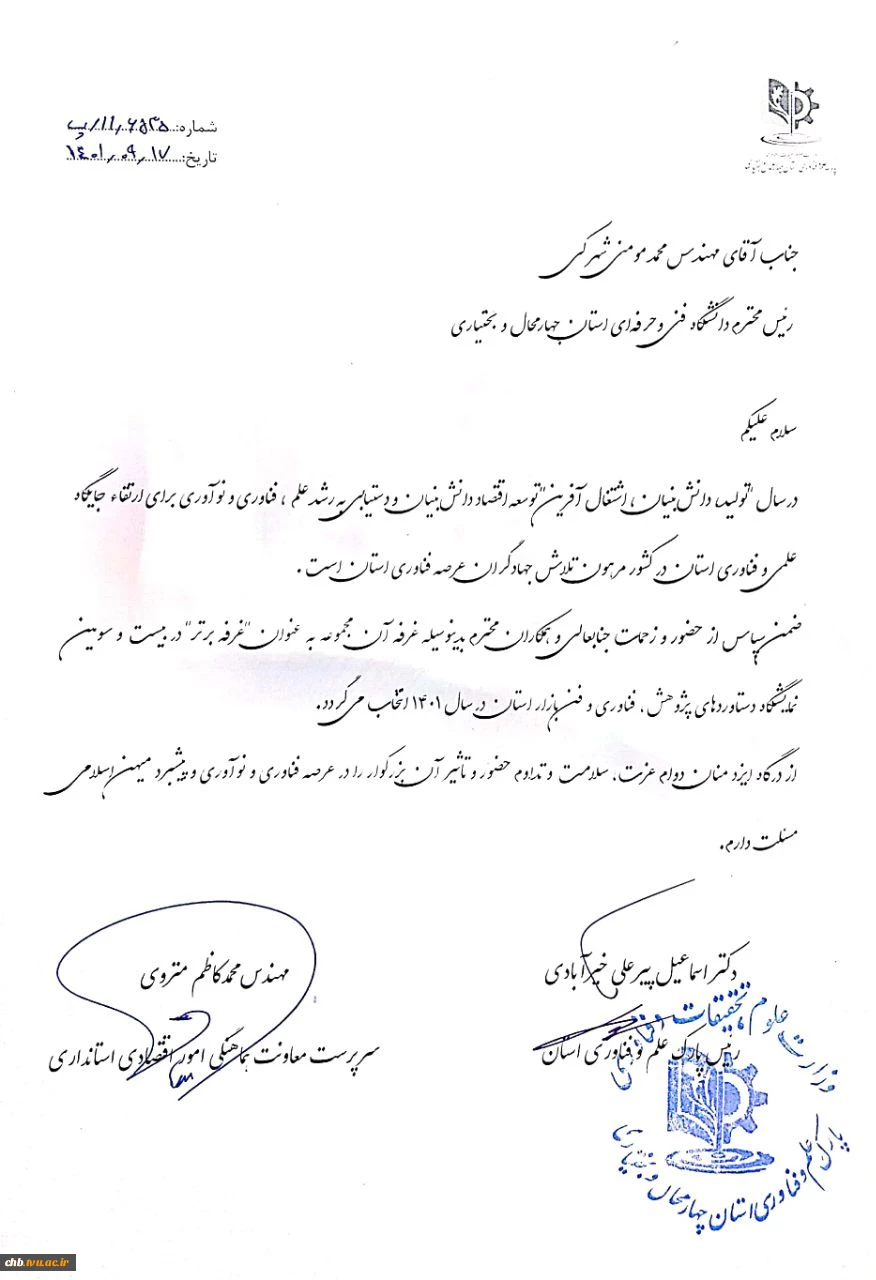 شماره: ۱۱٫۶۵۴۵/پ
تاریخ: ۱۴۰۱٫۰۹٫۱۷
پارک علم و فناوری استان چهارمحال و بختیاری
جناب آقای مهندس محمد مومنی شهرکی
رئیس محترم دانشگاه فنی و حرفه‌ای استان چهارمحال و بختیاری
سلام علیکم
در سال "تولید، دانش‌بنیان، اشتغال آفرین" توسعه اقتصاد دانش‌بنیان و دستیابی به رشد علم ، فناوری و نوآوری برای ارتقاء جایگاه
علمی و فناوری استان در کشور مرهون تلاش جهادگران عرصه فناوری استان است .
ضمن سپاس از حضور و زحمات جنابعالی و همکاران محترم بدینوسیله غرفه آن مجموعه به عنوان "غرفه برتر" در بیست و سومین
نمایشگاه دستاوردهای پژوهش، فناوری و فن‌بازار استان در سال ۱۴۰۱ انتخاب می‌گردد.
از درگاه ایزد منان دوام عزت، سلامت و تداوم حضور و تأثیر آن بزرگوار را در عرصه فناوری و نوآوری و پیشبرد میهن اسلامی
مسئلت دارم.
دکتر اسماعیل پیرعلی خیرآبادی
رئیس پارک علم و فناوری استان
مهندس محمدکاظم متروی
سرپرست معاونت هماهنگی امور اقتصادی استانداری
وزارت علوم، تحقیقات و فناوری
پارک علم و فناوری استان چهارمحال و بختیاری
chb.tvu.ac.ir